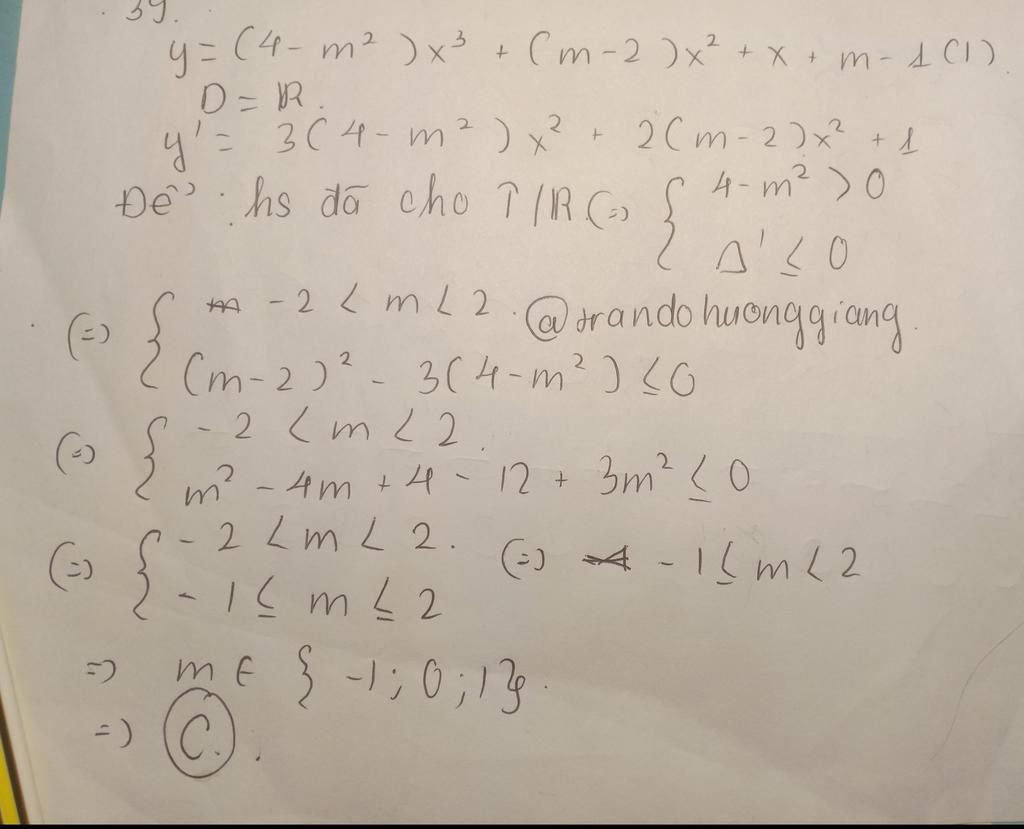 39.
y = (4 - m²)x³ + (m-2)x² + x + m - 1 (1).
D = ℝ.
y' = 3(4 - m²)x² + 2(m-2)x² + 1
Để hs đã cho ↑/ℝ (=) { 4-m² > 0
Δ' ≤ 0
(=) { -2 < m < 2. @trandohuonggiang.
(m-2)² - 3(4-m²) ≤ 0
(=) { -2 < m < 2.
m² - 4m + 4 - 12 + 3m² ≤ 0
(=) { -2 < m < 2. (=) -1 ≤ m < 2
-1 ≤ m ≤ 2
=) m ∈ {-1; 0; 1}.
=) C.